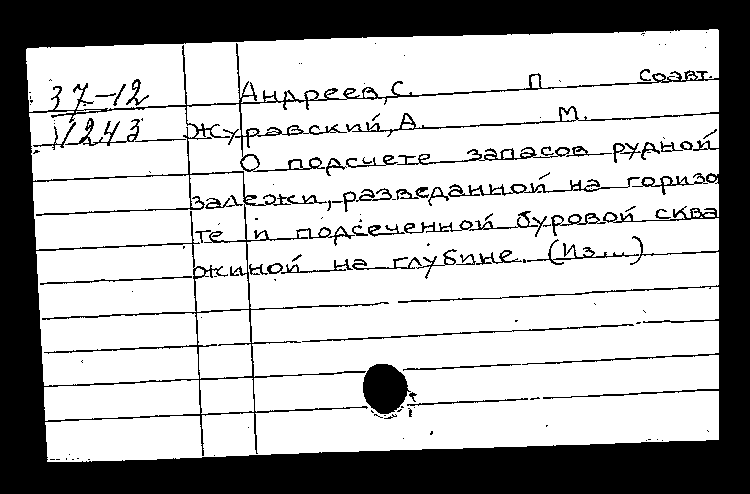 37-12
11243
Андреев, С. П. Соавт.
Журавский, А. М.
О подсчете запасов рудной
залежи, разведанной на горизо
те и подсеченной буровой сква
жиной на глубине. (Из...)